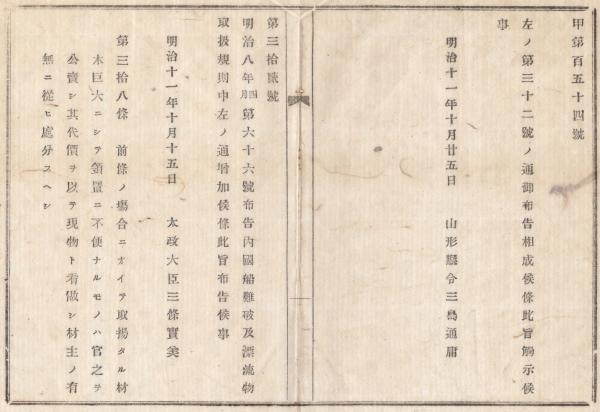 甲第百五十四號
左ノ第三十二號ノ通御布告相成候條此旨觸示候
事
明治十一年十月廿五日　山形縣令三島通庸
第三拾貮號
明治八年四月第六十六號布告內國船難破及漂流物
取扱規則中左ノ通增加候條此旨布告候事
明治十一年十月十五日　太政大臣三條實美
第三拾八條　前條ノ塲合ニオイテ取揚タル材
木巨大ニシテ領置ニ不便ナルモノハ官之ヲ
公賣シ其代價ヲ以テ現物ト看做シ材主ノ有
無ニ從ヒ處分スヘシ